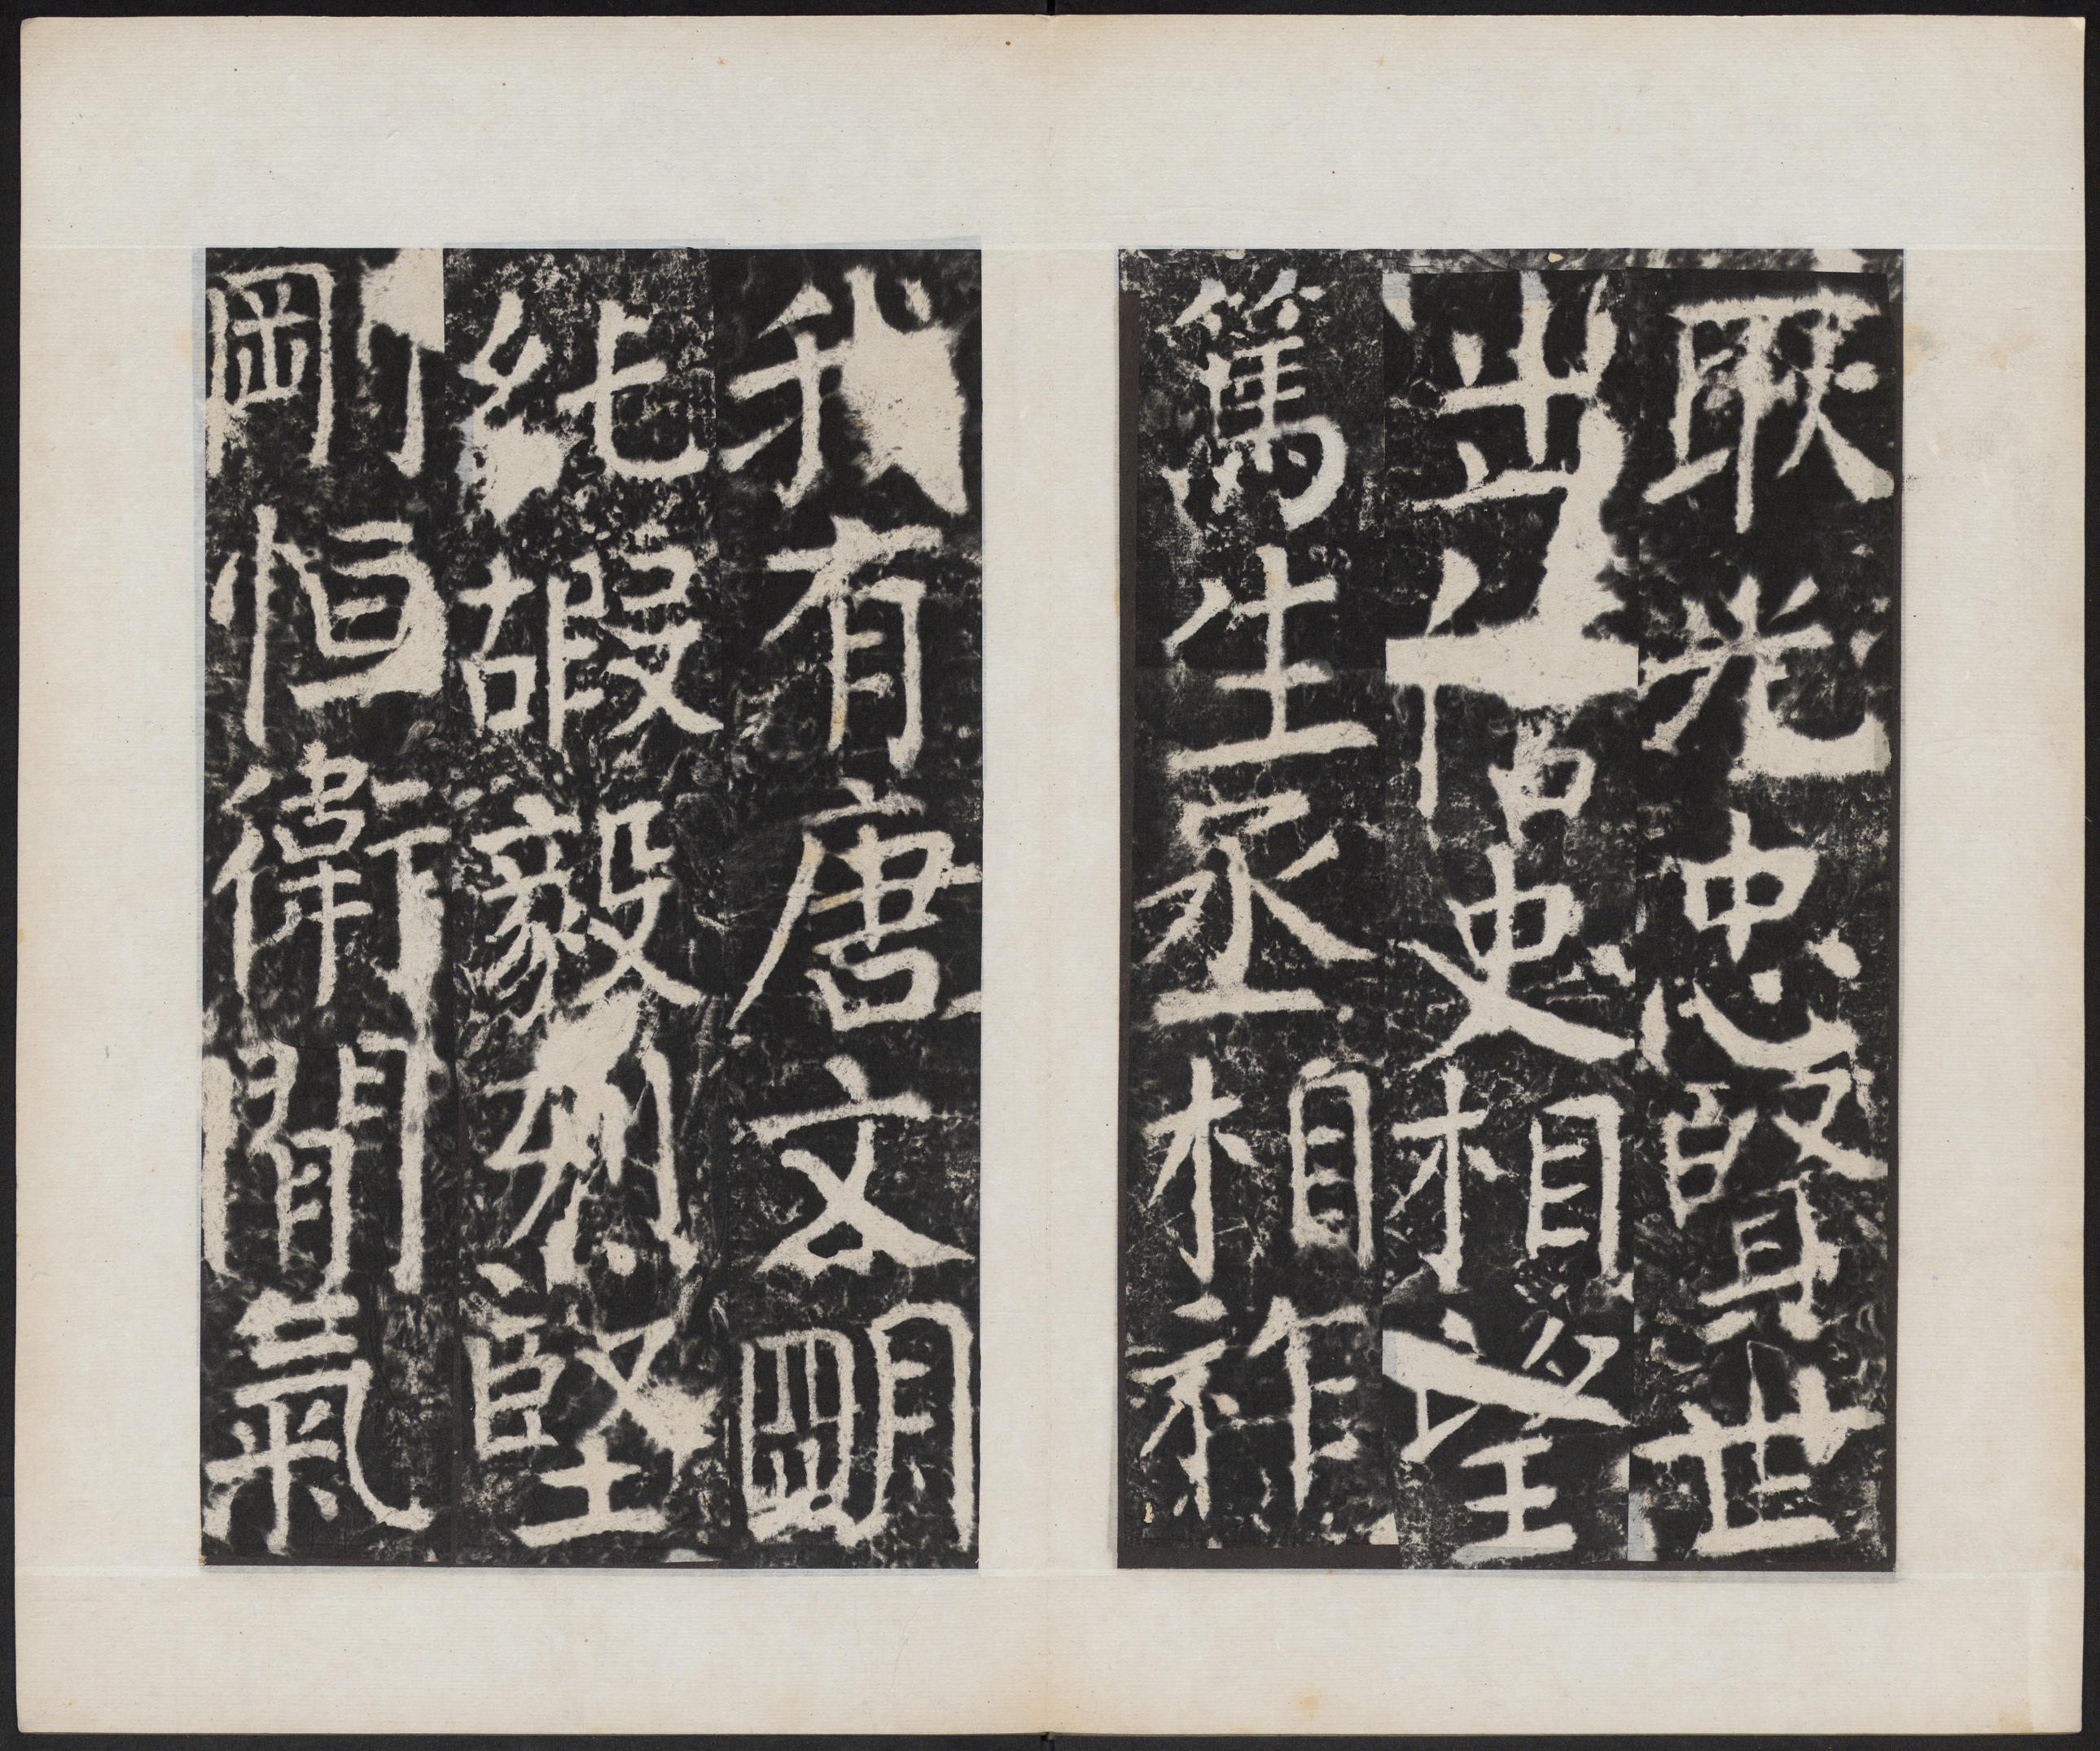 耿光忠賢世
出僭史相望
篤生丞相祚
我有唐文明
純嘏毅烈堅
剛恒衛閒氣